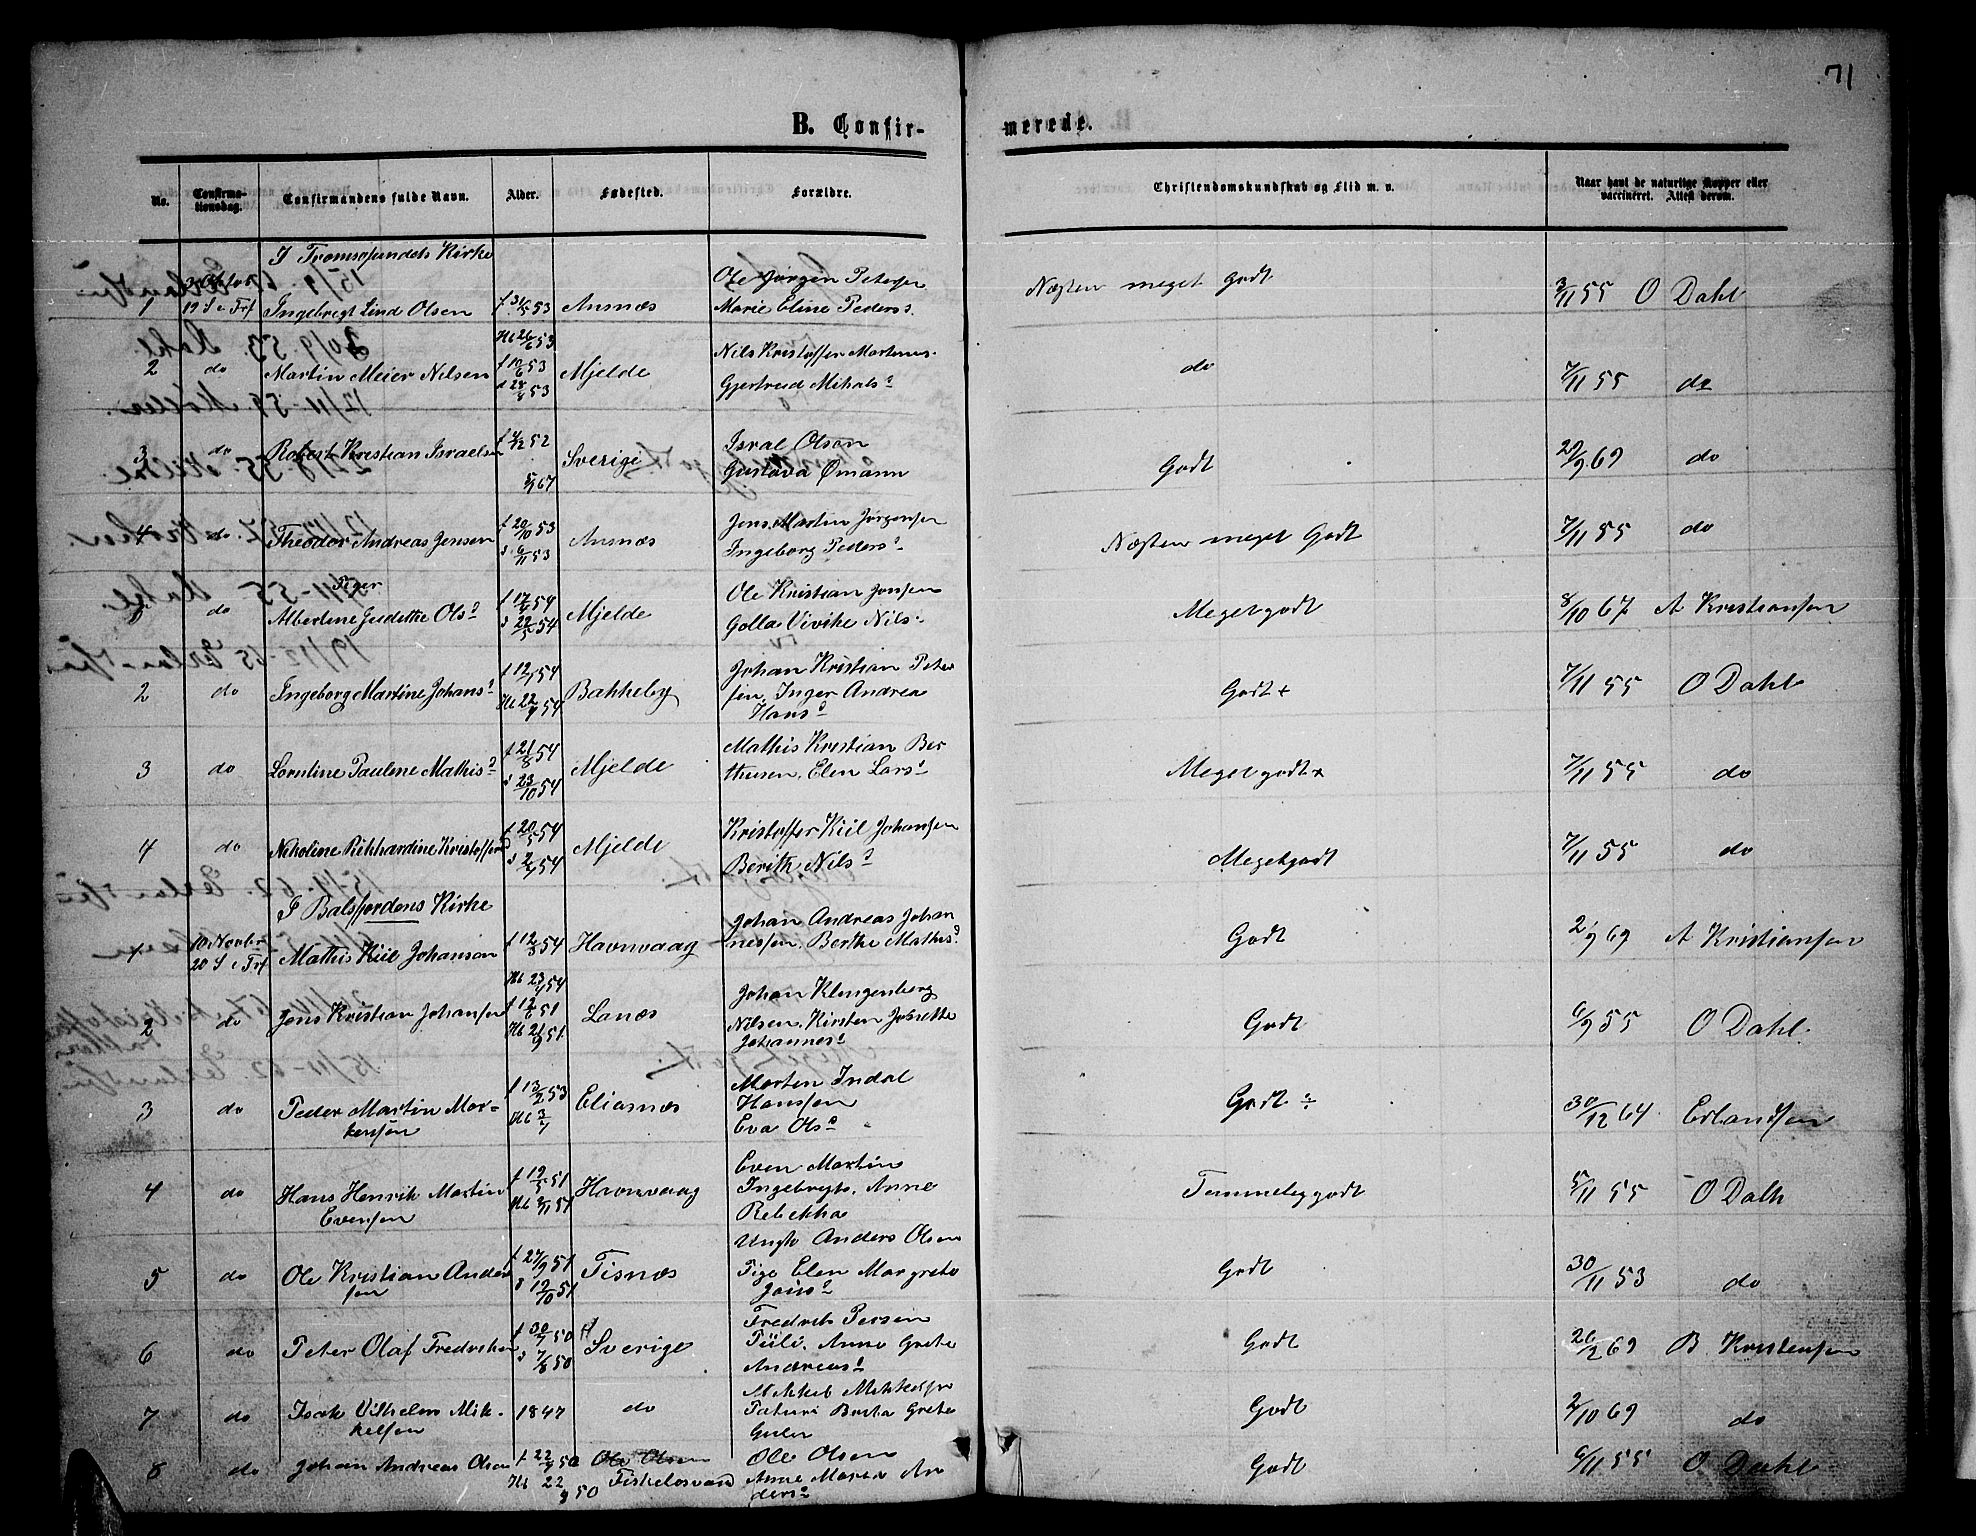 71
B. Confir-
merede.
No.
Confirma-
tionsdag.
Confirmandens fulde Navn.
Alder.
Fødested.
Forældre.
Christendomskundskab og Flid m. v.
Naar havt de naturlige Kopper eller
vaccineret. Attest derom.
I Tromsøsundets Kirke
1 19 S e Trf Ingebrigt Lind Olsen f 31/5 53 Ansnæs
Ole Jørgen Petersen
Marie Eline Peders.
Næsten meget Godt
3/11 55 O Dahl
Hd 26/6 53
2 do Martin Meier Nilsen f 10/6 53 Mjelde
Nils Kristoffer Martinus.
Gjertrud Mikals
do
7/11 55 do
3 do Robert Kristian Israelsen 52 Sverige
67
Isral Olsen
Gustava Ømann
Godt
29/9 69 do
4 do Theodor Andreas Jensen f 20/10 53 Ansnæs
d 6/11 53
Jens Martin Jørgensen
Ingeborg Peders
Næsten meget Godt
7/11 55 do
Piger
1 do Albertine Judithe Ols f 17/4 54 Mjelde
d 22/5 54
Ole Kristian Jonsen
Golla Vivike Nils
Meget godt
8/10 67 A Kristiansen
2 do Ingeborg Martine Johans 54 Bakkeby
Johan Kristian Peter
sen, Inger Andrea
Hans
Godt +
7/11 55 O Dahl
3 do Lorntine Pauline Mathis f 21/8 54 Mjelde
d 23/10 54
Mathis Kristian Ber
theusen, Elen Lars
Meget godt +
7/11 55 do
4 do Nikoline Rikhardine Kristoffers f 20/5 54 Mjelde
Kristoffer Kiil Johansen
Berith Nils
Meget godt
7/11 55 do
I Balsfjordens Kirke
1 10 Novbr
20 S e Trf Mathis Kiil Johansen f 12/3 54 Havnvaag
Johan Andreas Johan
nessen, Berthe Mathis
Godt
2/9 69 A Kristiansen
2 do Jens Kristian Johansen f 12/6 51 Lanes
Hd 21/9 51
Johan Klingenberg
Nilsen, Kirsten Josette
Johannes
Godt
6/9 55 O Dahl.
3 do Peder Martin Mor-
tensen f 13/2 53 Eliasnæs
Morten Indal
Hanssen
Eva Ols
Godt ÷
30/12 64 Erlandsen
4 do Hans Henrik Martin
Evensen f 19/5 51 Havnvaag
Even Martin
Ingebrigts. Anne
Rebekka
Temmelig godt
5/11 55 O Dalh
5 do Ole Kristian Ander
sen f 27/9 51 Tisnæs
d 12/10 51
Ungk Anders Olsen
Pige Elen Margrete
Jens
Godt
30/11 53 do
6 do Peter Olaf Fredriksen f 30/7 50 Sverige
d 7/8 50
Fredrik Persen
Piili, Anna Grete
Andreas
Godt
26/2 69 B Kristensen
7 do Isak Vilhelm Mik-
kelsen 1847 do
Mikkel Mikkelsen
Brita Grete
Godt
2/10 69 do
8 do Johan Andreas Olsen f 22 50 Ole Olsen
Fiskeløsvand
Ole Olsen
Anne Maria An
ders
Godt
6/11 55 O Dahl